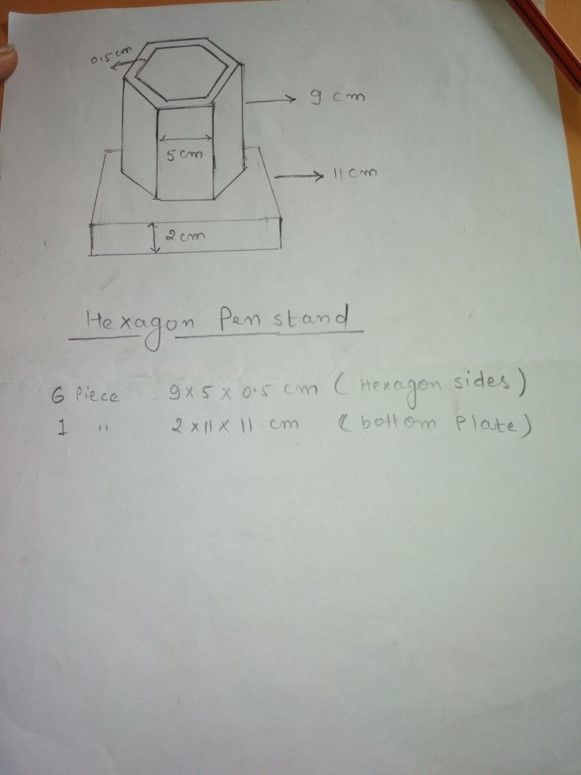 0.5cm
9 cm
5cm
11 cm
2cm
Hexagon Pen stand
6 Piece 9×5×0.5 cm (Hexagon sides)
1 " 2×11×11 cm (bottom Plate)